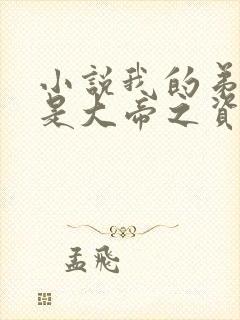 小說我的弟
是大帝之資
孟飛